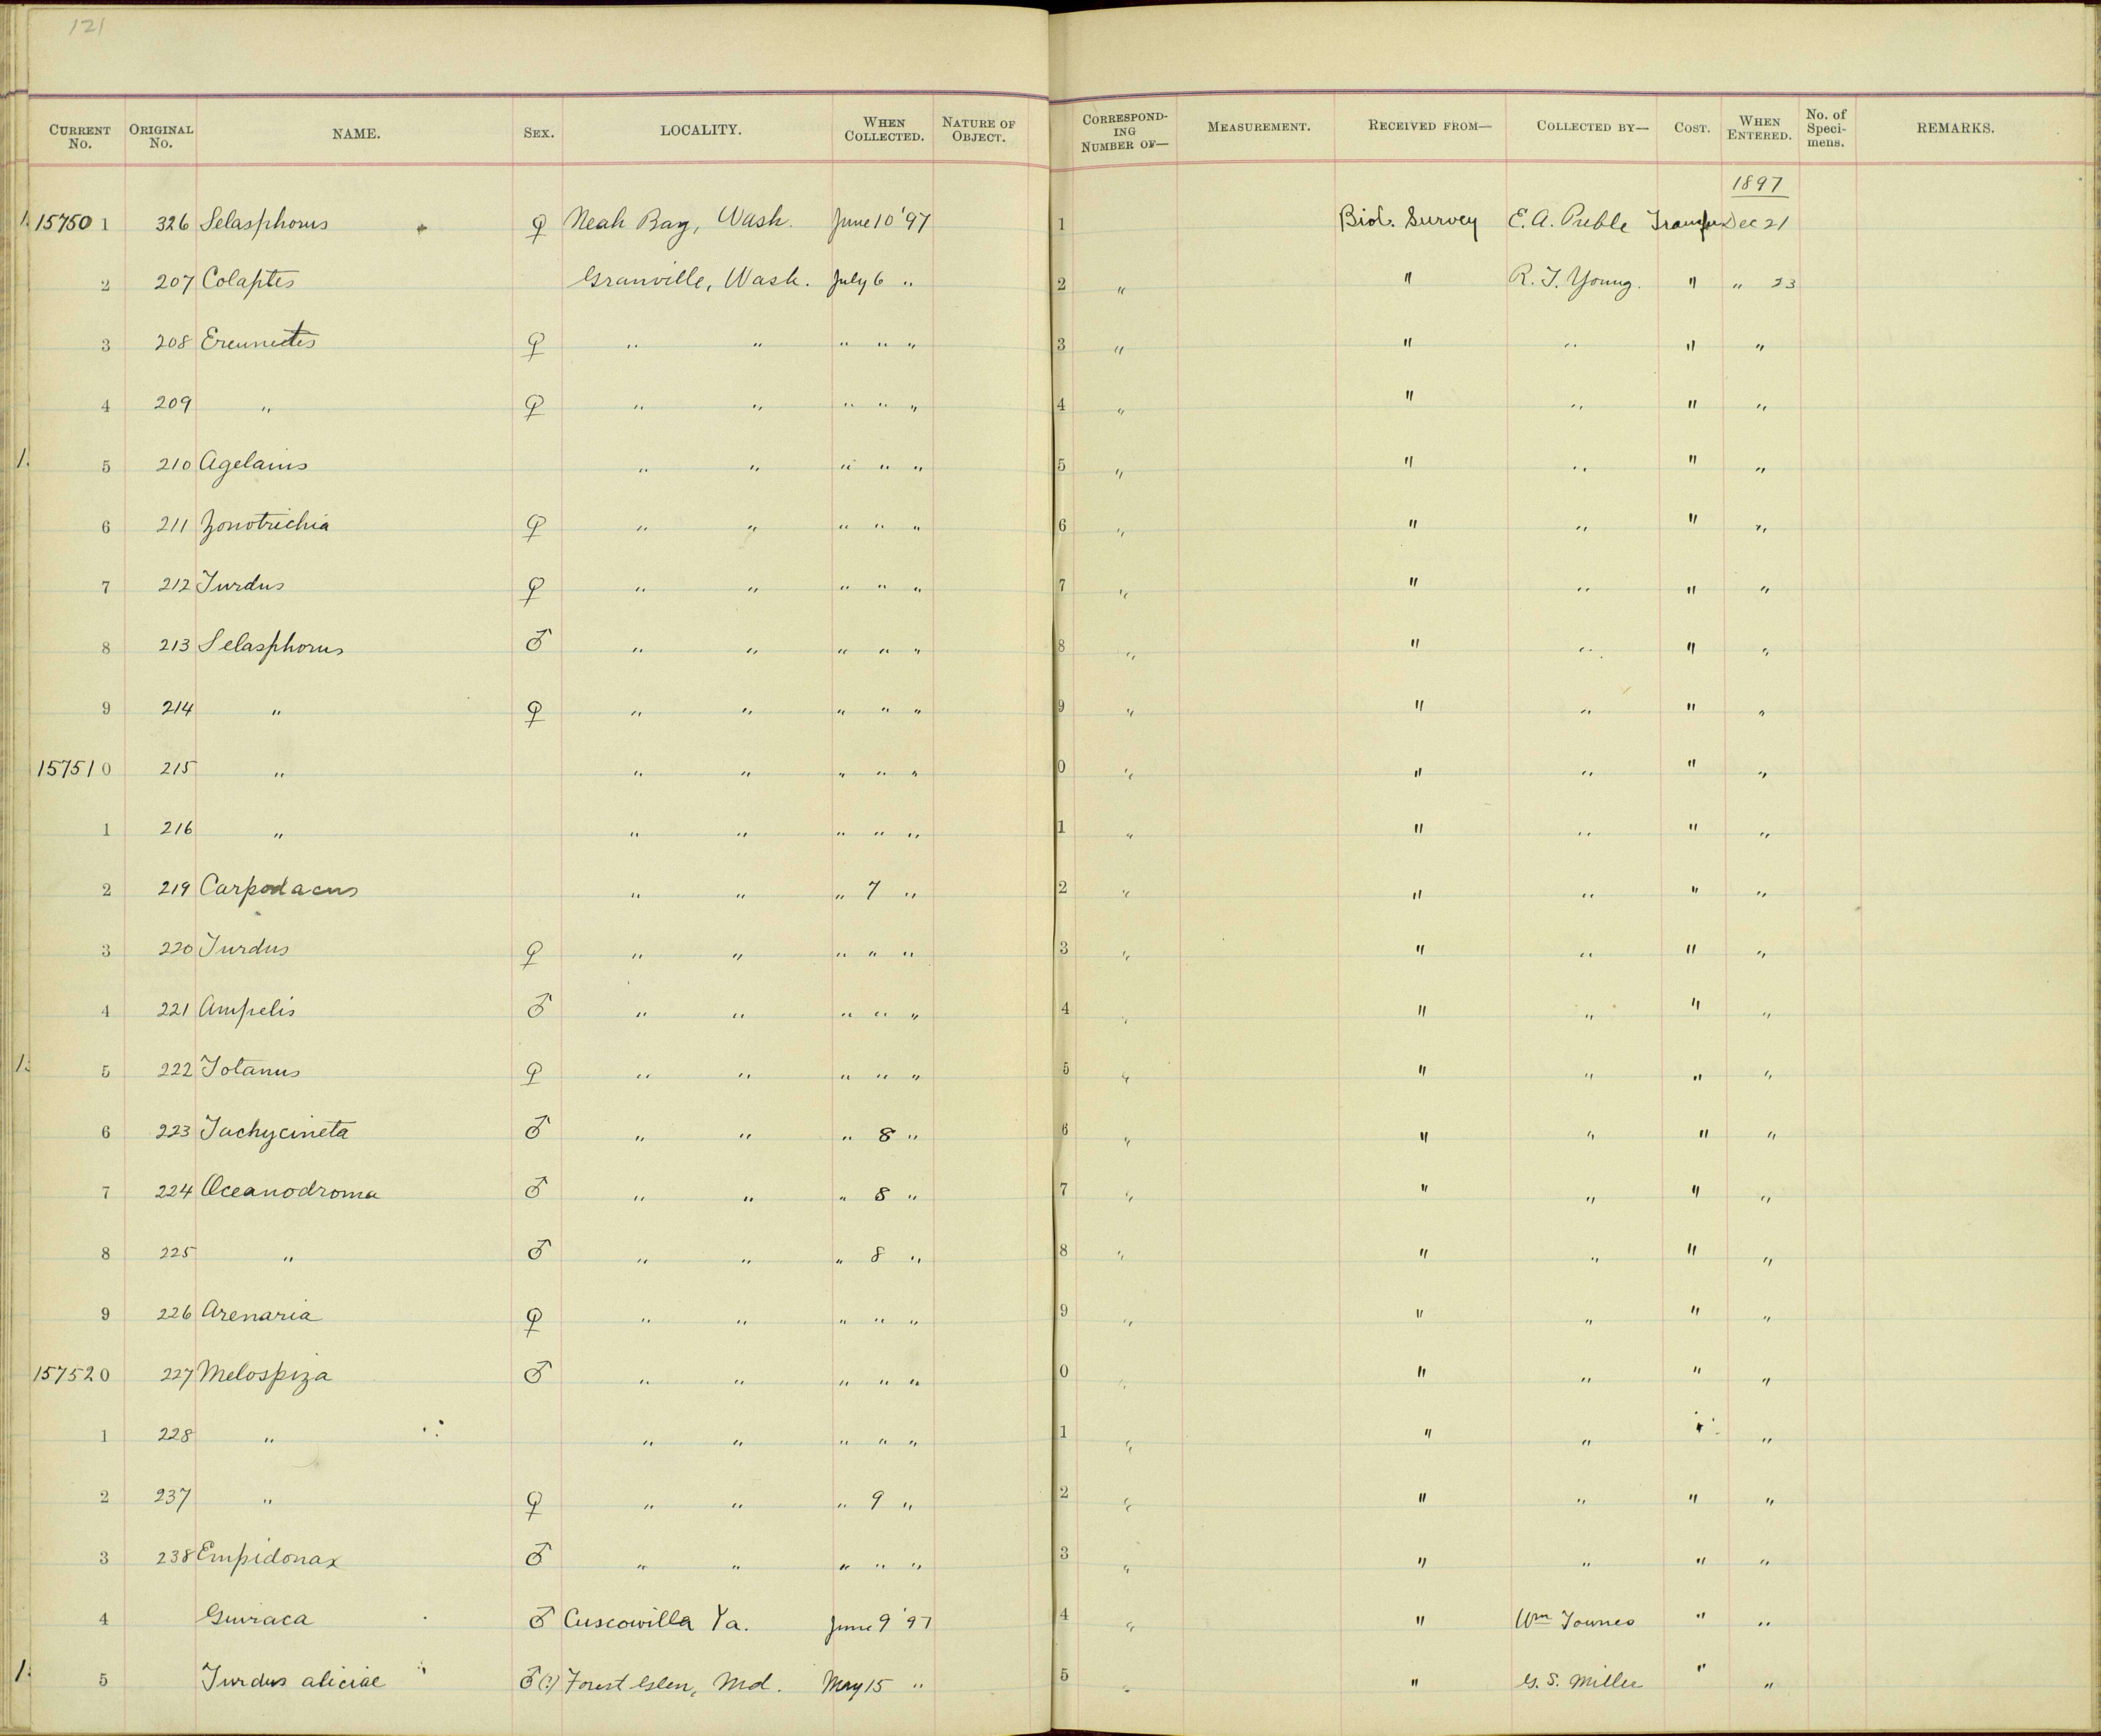 121
CURRENT No. ORIGINAL No. NAME. SEX. LOCALITY. WHEN COLLECTED. NATURE OF OBJECT. CORRESPONDING NUMBER OF— MEASUREMENT. RECEIVED FROM— COLLECTED BY— COST. WHEN ENTERED. No. of Specimens. REMARKS.
1897
157501 326 Selasphorus ♀ Neah Bay, Wash. June 10 '97 1 Biol. Survey E. A. Preble Transfer Dec 21
2 207 Colaptes Granville, Wash. July 6 " 2 " " R. T. Young. " " 23
3 208 Ereunetes ♀ " " " " " 3 " " " " "
4 209 " ♀ " " " " " 4 " " " " "
5 210 Agelaius " " " " " 5 " " " " "
6 211 Zonotrichia ♀ " " " " " 6 " " " " "
7 212 Turdus ♀ " " " " " 7 " " " " "
8 213 Selasphorus ♂ " " " " " 8 " " " " "
9 214 " ♀ " " " " " 9 " " " " "
157510 215 " " " " " " 0 " " " " "
1 216 " " " " " " 1 " " " " "
2 219 Carpodacus " " " 7 " 2 " " " " "
3 220 Turdus ♀ " " " " " 3 " " " " "
4 221 Ampelis ♂ " " " " " 4 " " " " "
5 222 Totanus ♀ " " " " " 5 " " " " "
6 223 Tachycineta ♂ " " " 8 " 6 " " " " "
7 224 Oceanodroma ♂ " " " 8 " 7 " " " " "
8 225 " ♂ " " " 8 " 8 " " " " "
9 226 Arenaria ♀ " " " " " 9 " " " " "
157520 227 Melospiza ♂ " " " " " 0 " " " " "
1 228 " " " " " " 1 " " " " "
2 237 " ♀ " " " 9 " 2 " " " " "
3 238 Empidonax ♂ " " " " " 3 " " " " "
4 Guiraca ♂ Cuscowilla Va. June 9 '97 4 " " Wm Townes " "
5 Turdus aliciae ♂(?) Forest Glen, Md. May 15 " 5 " " G. S. Miller " "